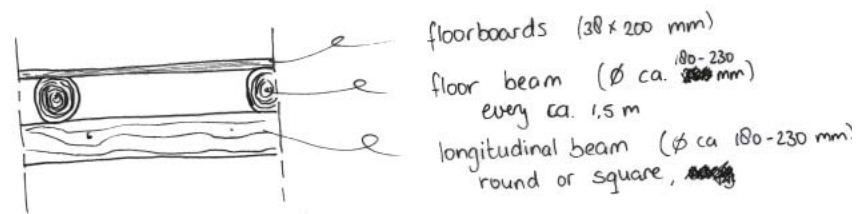 floorboards (38 x 200 mm)
180-230
floor beam (ϕ ca. mm)
every ca. 1,5 m
longitudinal beam (ϕ ca 180-230 mm)
round or square,